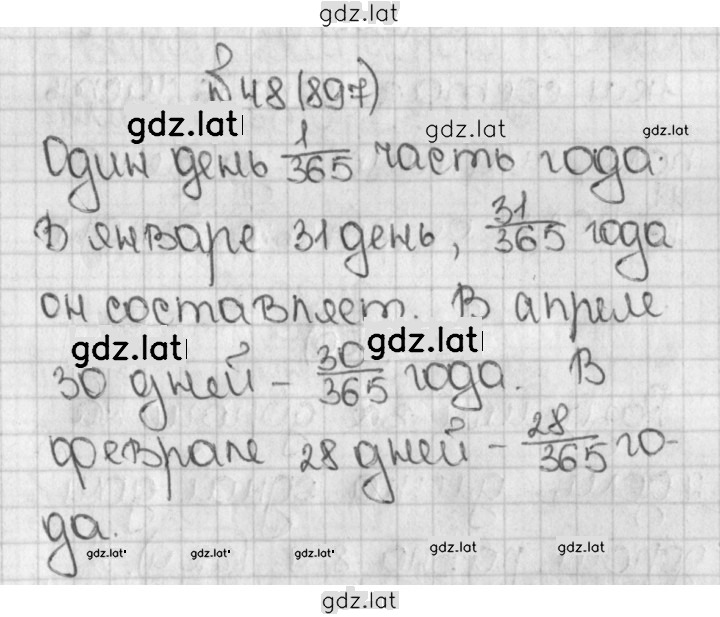 gdz.lat
№ 48 (897)
gdz.lat gdz.lat gdz.lat
Один день 1/365 часть года.
В январе 31 день, 31/365 года
он составляет. В апреле
gdz.lat gdz.lat
30 дней - 30/365 года. В
феврале 28 дней - 28/365 го-
да.
gdz.lat gdz.lat gdz.lat gdz.lat gdz.lat
gdz.lat